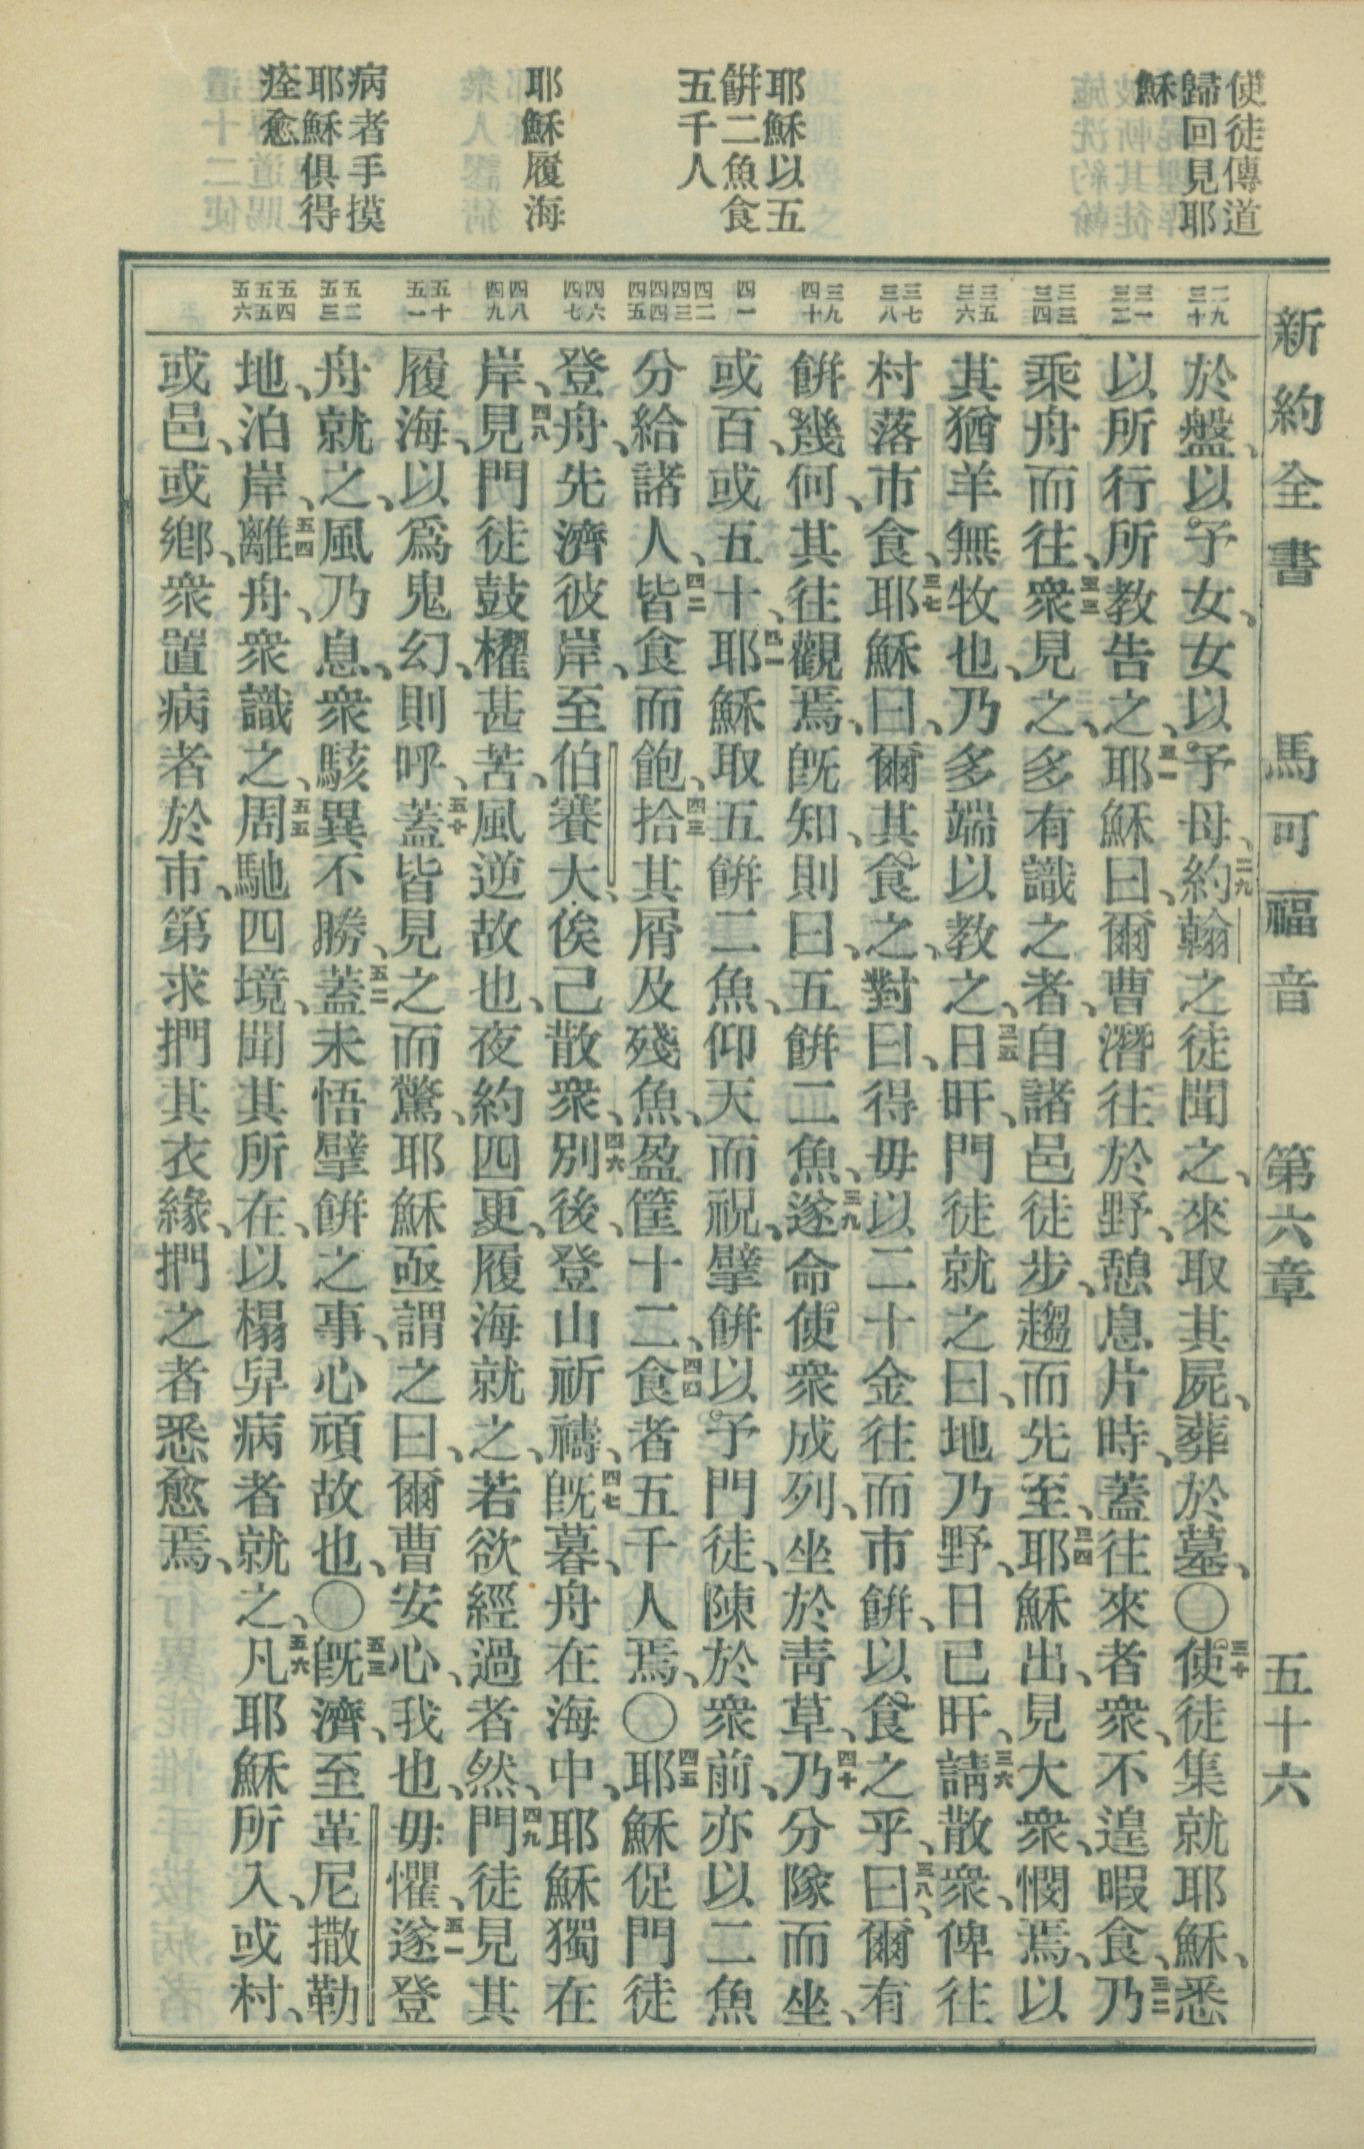 新約全書 馬可福音 第六章 五十六
使徒傳道
歸回見耶
穌
耶穌以五
餠二魚食
五千人
耶穌履海
病者手摸
耶穌俱得
痊愈
二九 三十
三一 三二
三三 三四
三五 三六
三七 三八
三九 四十
四一
四二 四三 四四 四五
四六 四七
四八 四九
五十 五一
五二 五三
五四 五五 五六
於盤、以予女、女以予母、二九約翰之徒聞之、來取其屍、葬於墓、〇三十使徒集就耶穌、悉
以所行所教告之、三一耶穌曰、爾曹潛往於野、憩息片時、蓋往來者衆、不遑暇食、三二乃
乘舟而往、三三衆見之、多有識之者、自諸邑徒步、趨而先至、三四耶穌出、見大衆、憫焉、以
其猶羊無牧也、乃多端以教之、三五日旰、門徒就之曰、地乃野、日已旰、三六請散衆、俾往
村落市食、三七耶穌曰、爾其食之、對曰、得毋以二十金往而市餠、以食之乎、三八曰、爾有
餠幾何、其往觀焉、旣知、則曰、五餠二魚、三九遂命使衆成列、坐於靑草、四十乃分隊而坐、
或百、或五十、四一耶穌取五餠二魚、仰天而祝、擘餠以予門徒、陳於衆前、亦以二魚
分給諸人、四二皆食而飽、四三拾其屑及殘魚、盈筐十二、四四食者五千人焉、〇四五耶穌促門徒
登舟、先濟彼岸、至伯賽大、俟己散衆、四六別後、登山祈禱、四七旣暮、舟在海中、耶穌獨在
岸、四八見門徒鼓櫂甚苦、風逆故也、夜約四更、履海就之、若欲經過者然、四九門徒見其
履海、以爲鬼幻、則呼、五十蓋皆見之而驚、耶穌亟謂之曰、爾曹安心、我也、毋懼、五一遂登
舟就之、風乃息、衆駭異不勝、五二蓋未悟擘餠之事、心頑故也、〇五三旣濟、至革尼撒勒
地、泊岸、五四離舟、衆識之、五五周馳四境、聞其所在、以榻舁病者就之、五六凡耶穌所入、或村、
或邑、或鄕、衆置病者於市、第求捫其衣緣、捫之者悉愈焉、